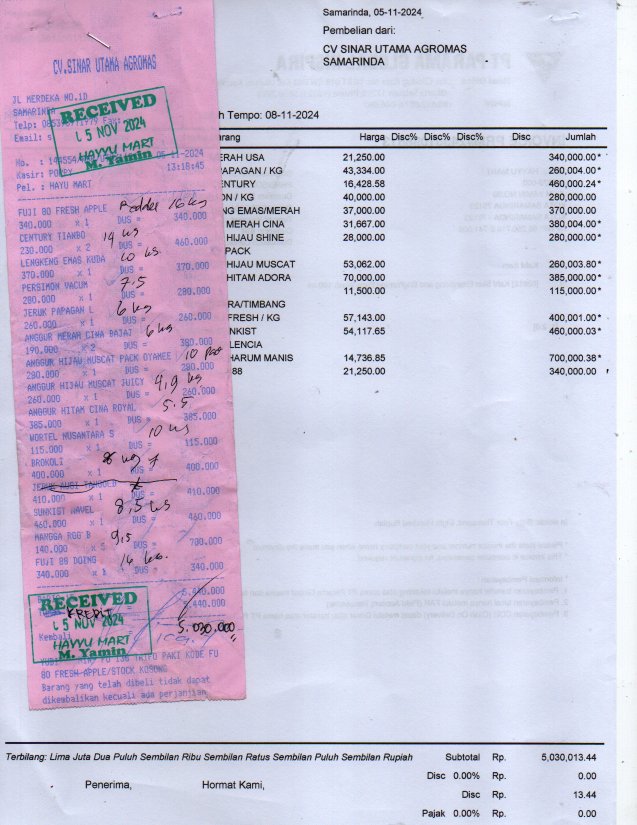 Samarinda, 05-11-2024
Pembelian dari:
CV SINAR UTAMA AGROMAS
SAMARINDA
h Tempo: 08-11-2024
arang Harga Disc% Disc% Disc% Disc Jumlah
ERAH USA 21,250.00 340,000.00 *
APAGAN / KG 43,334.00 260,004.00 *
ENTURY 16,428.58 460,000.24 *
ON / KG 40,000.00 280,000.00
NG EMAS/MERAH 37,000.00 370,000.00
MERAH CINA 31,667.00 380,004.00 *
HIJAU SHINE 28,000.00 280,000.00 *
PACK
HIJAU MUSCAT 53,062.00 260,003.80 *
HITAM ADORA 70,000.00 385,000.00 *
11,500.00 115,000.00 *
RA/TIMBANG
FRESH / KG 57,143.00 400,001.00 *
NKIST 54,117.65 460,000.03 *
LENCIA
HARUM MANIS 14,736.85 700,000.38 *
88 21,250.00 340,000.00
CV.SINAR UTAMA AGROMAS
JL MERDEKA NO.1D
SAMARINDA
Telp:
Email: s
RECEIVED
05 NOV 2024
HAYYU MART
M. Yamin
No. : 05-11-2024
Kasir: POPPY 13:18:45
Pel. : HAYU MART
FUJI 80 FRESH APPLE 16 kg
340.000 x 1 DUS = 340.000
CENTURY TIANBO 14 kg
230.000 x 2 DUS = 460.000
LENGKENG EMAS KUDA 10 kg
370.000 x 1 DUS = 370.000
PERSIMON VACUM 7.5
280.000 x 1 DUS = 280.000
JERUK PAPAGAN L 6 kg
260.000 x 1 DUS = 260.000
ANGGUR MERAH CINA BAJAJ 6 kg
190.000 x 2 DUS = 380.000
ANGGUR HIJAU MUSCAT PACK OYAMEE 10 pak
280.000 x 1 DUS = 280.000
ANGGUR HIJAU MUSCAT JUICY 4,9 kg
260.000 x 1 DUS = 260.000
ANGGUR HITAM CINA ROYAL 5.5
385.000 x 1 DUS = 385.000
WORTEL NUSANTARA S 10 kg
115.000 x 1 DUS = 115.000
BROKOLI 8 kg
400.000 x 1 DUS = 400.000
JERUK AUSI TANGOLD
410.000 x 1 DUS = 410.000
SUNKIST NAVEL 8,5 kg
460.000 x 1 DUS = 460.000
MANGGA RGG B 9,5
140.000 x 5 DUS = 700.000
FUJI 88 DOING 16 kg
340.000 x 1 DUS = 340.000
5.440.000
5.440.000
KREDIT
5.030.000
RECEIVED
05 NOV 2024
HAYYU MART
M. Yamin
Kembali
80 FRESH APPLE/STOCK KOSONG
Barang yang telah dibeli tidak dapat
dikembalikan kecuali ada perjanjian
Terbilang: Lima Juta Dua Puluh Sembilan Ribu Sembilan Ratus Sembilan Puluh Sembilan Rupiah Subtotal Rp. 5,030,013.44
Disc 0.00% Rp. 0.00
Penerima, Hormat Kami, Disc Rp. 13.44
Pajak 0.00% Rp. 0.00